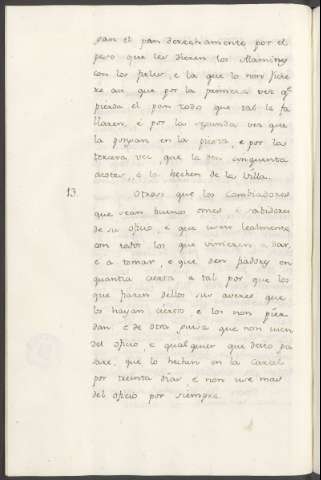 pan el pan derechamente por el
peso que les dieren los Alamines
con los fieles, e la que lo non ficie
re asi que por la primera vez qe
pierda el pan todo que tal le fa
llaren, e por la segunda vez que
la pongan en la picota, e por la
tercera vez que la den cinquenta
azotes, e la hechen de la Villa.
13. Otrosi que los Cambiadores
que sean buenos omes, e sabidores
de su oficio, e que usen lealmente
con todos los que vinieren a dar,
e a tomar, e que den fiadores en
quantia cierta e tal por que los
que fiaren dellos sus averes que
los hayan cierto e los non pier
dan: e de otra guisa que non usen
del oficio e qualquier que desto pa
sare, que lo hechen en la Carcel
por treinta dias e non use mas
del oficio por siempre.